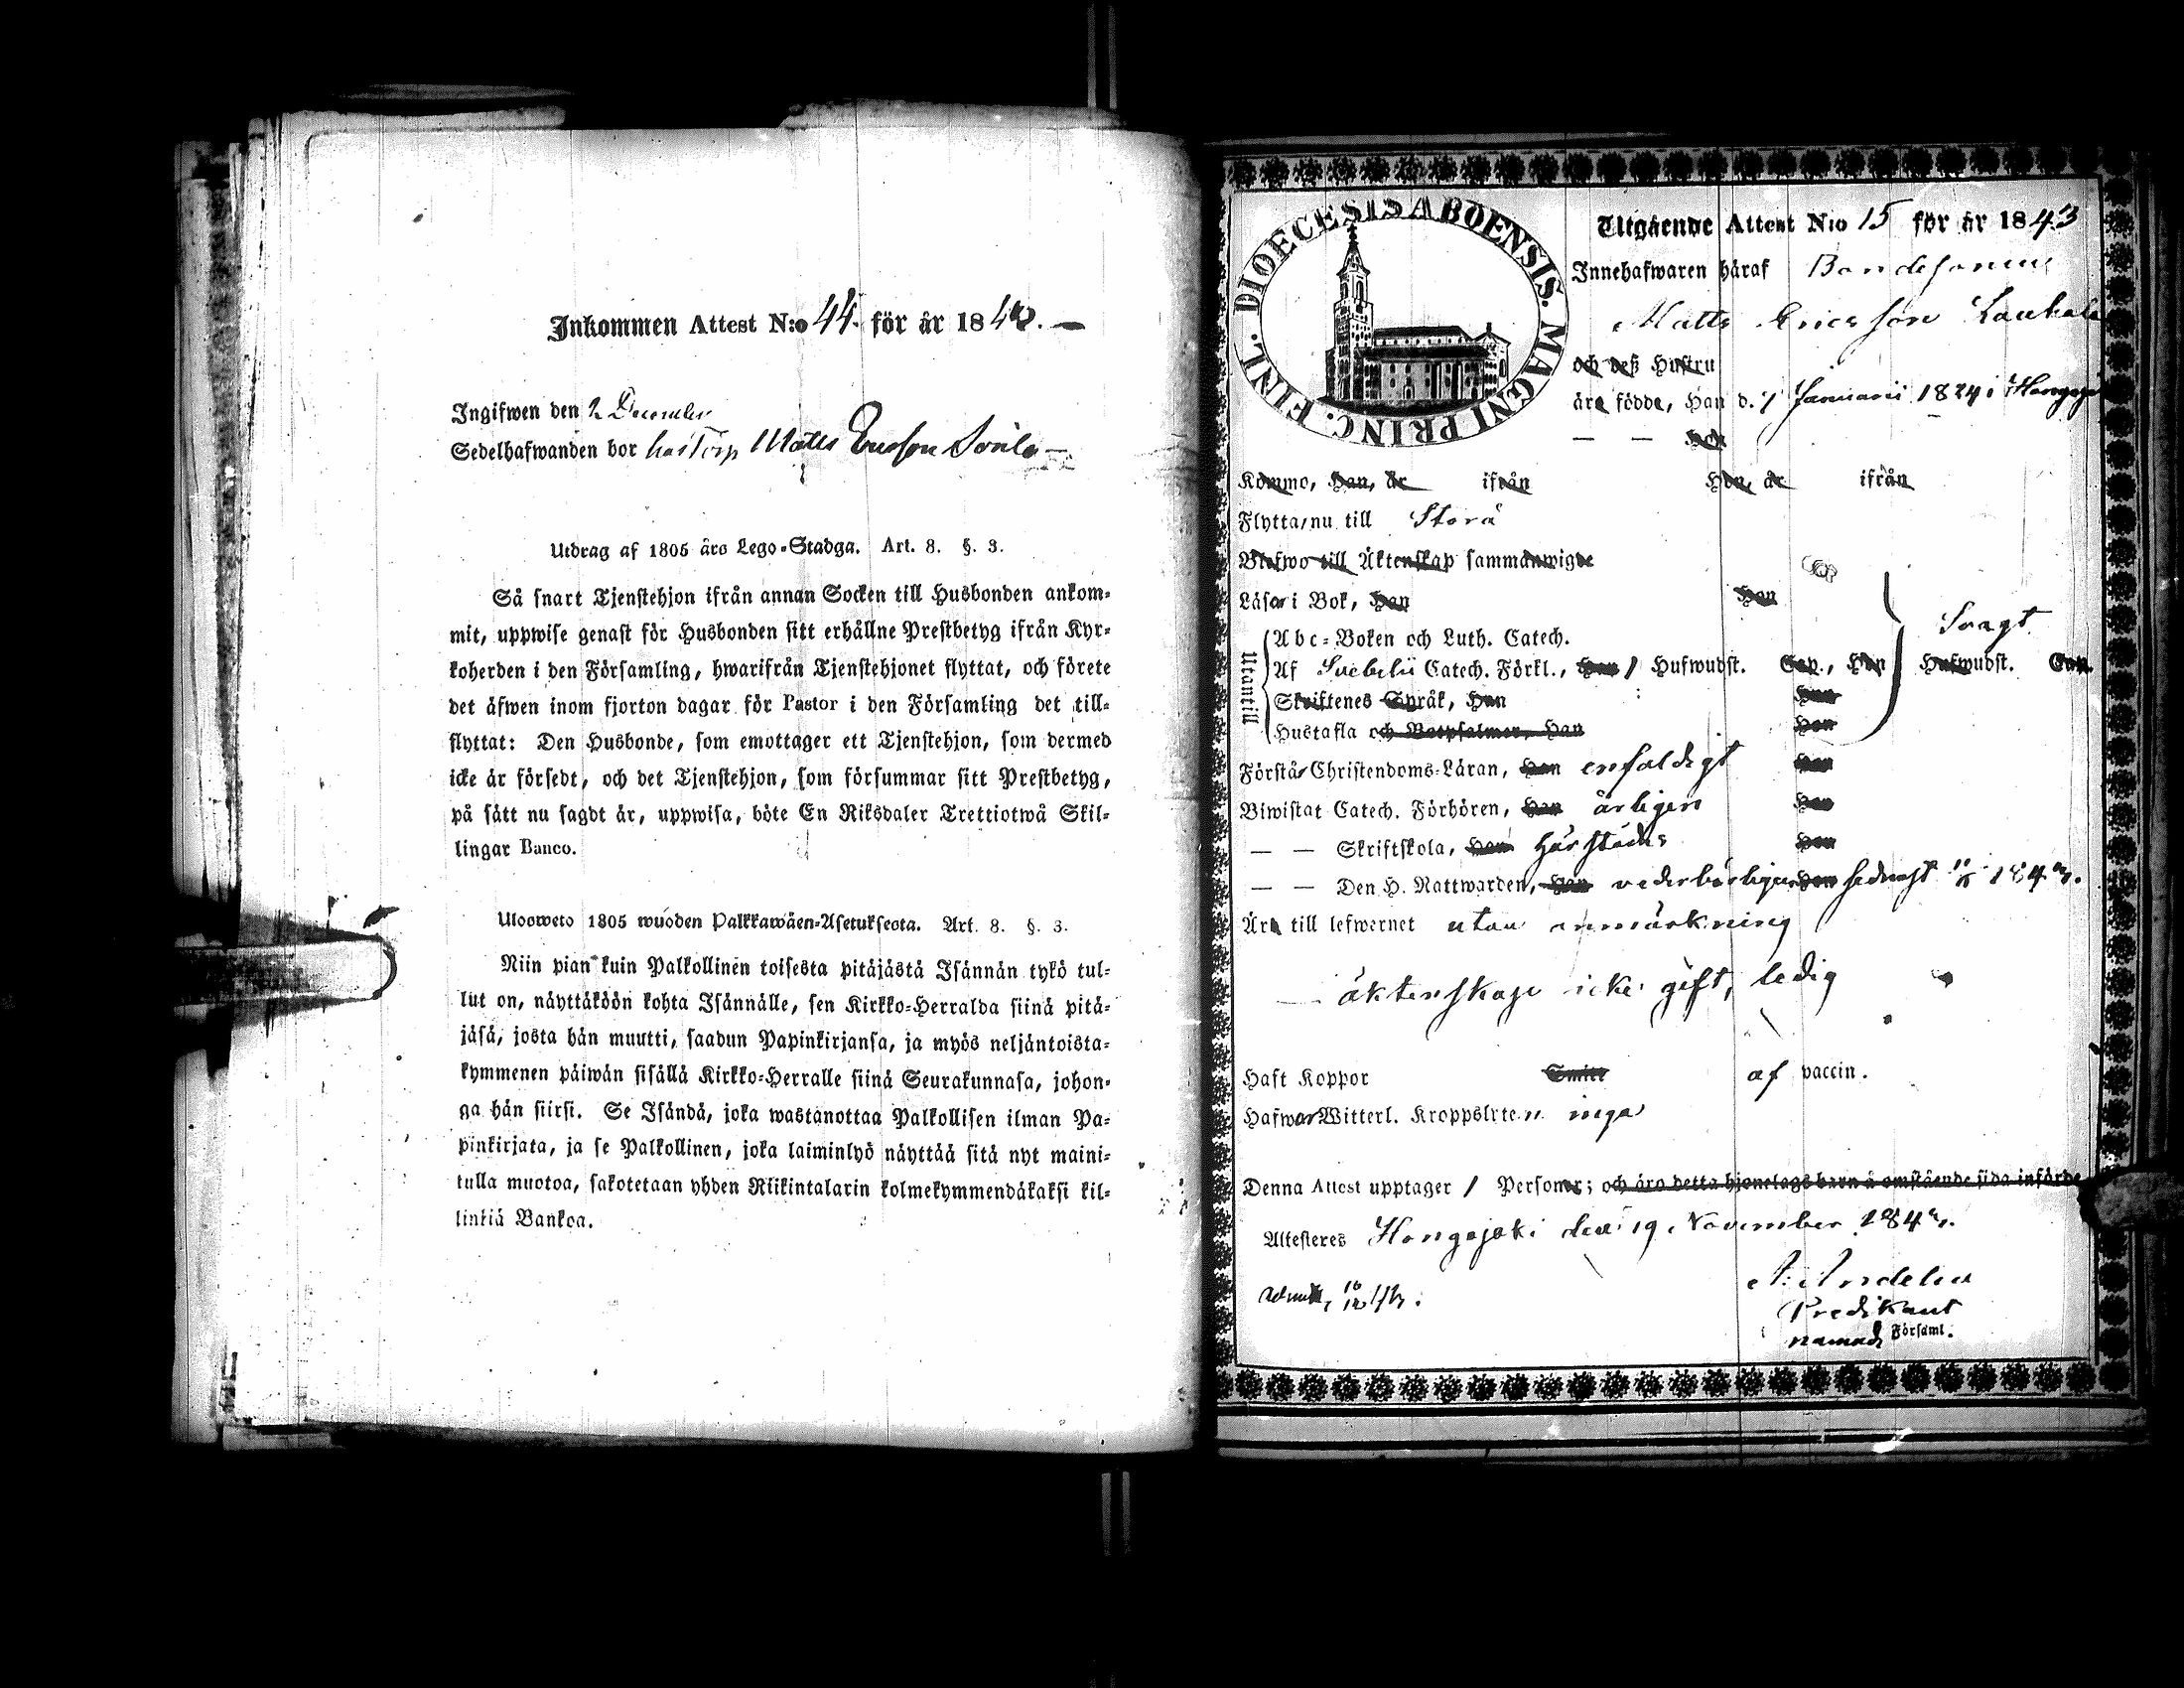 Inkommen Attest N:o 44. för år 184
Ingifwen den 2 December
Sedelhafwanden bor hos Torp Matts Ericsson
Utdrag af 1805 års Lego-Stadga. Art. 8. §. 3.
Så snart Tjenstehjon ifrån annan Socken till Husbonden ankom-
mit, uppwise genast för Husbonden sitt erhållne Prestbetyg ifrån Kyr-
koherden i den Församling, hwarifrån Tjenstehjonet flyttat, och förete
det äfwen inom fjorton dagar för Pastor i den Församling det till-
flyttat: Den Husbonde, som emottager ett Tjenstehjon, som dermed
icke är försedt, och det Tjenstehjon, som försummar sitt Prestbetyg,
på sätt nu sagdt är, uppwisa, böte En Riksdaler Trettiotwå Skil-
lingar Banco.
Ulosweto 1805 wuoden Palkkawäen-Asetuksesta. Art. 8. §. 3.
Niin pian kuin Palkollinen toisesta pitäjästä Isännän tykö tul-
lut on, näyttäköön kohta Isännälle, sen Kirkko-Herralda siinä pitä-
jäsä, josta hän muutti, saadun Papinkirjansa, ja myös neljäntoista-
kymmenen päiwän sisällä Kirkko-Herralle siinä Seurakunnasa, johon-
ga hän siirsi. Se Isändä, joka wastanottaa Palkollisen ilman Pa-
pinkirjata, ja se Palkollinen, joka laiminlyö näyttää sitä nyt maini-
tulla muotoa, sakotetaan yhden Riikintalarin kolmekymmendäkaksi kil-
linkiä Bankoa.
DIOECESIS ABOENSIS. MAGNI PRINC. FINL.
Utgående Attest N:o 15 för år 1843
Innehafwaren häraf Bondesonen
Matts Ericsson
och deß Hustru
äro födde, Han d. 7 Januarii 1824 i Hongojoki
— — Hon
Kommo, Han, år ifrån Hon, år ifrån
Flytta nu till Storå
Blefwo till Äktenskap sammanwigde
Läsa i Bok, Han Hon
Utantill
Abc-Boken och Luth. Catech. Svagt
Af Svebelii Catech. Förkl., Han 1 Hufwudst. Cap., Hon Hufwudst. Cap.
Skriftenes Språk, Han Hon
Hustafla och Botpsalmer, Han Hon
Förstå Christendoms-Läran, Han enfaldigt Hon
Biwistat Catech. Förhören, Han årligen Hon
— — Skriftskola, Han härstädes Hon
— — Den H. Nattwarden, Han vederbörligen Hon sednast 184
Äro till lefwernet utan anmärkning
— äktenskap icke gift, ledig
Haft Koppor Smitt af vaccin.
Hafwa Witterl. Kroppslyten inga
Denna Attest upptager 1 Personer; och äro detta hjonelags barn å omstående sida införde
Attesteres Hongojoki den 19 November 184
A. Andelin
Predikant
namnd Församl.